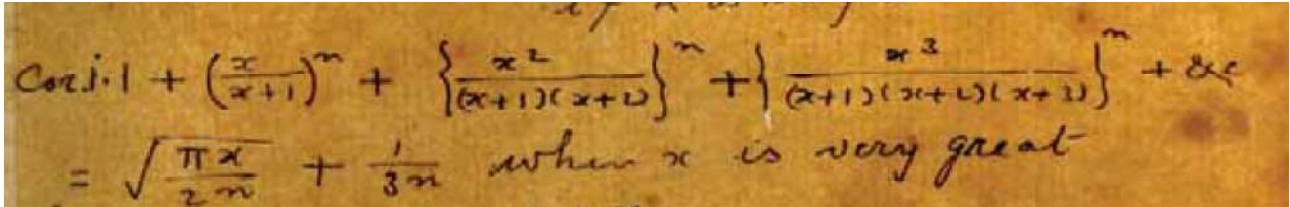 Cor. i. 1 + (x/(x+1))^n + {x^2/((x+1)(x+2))}^n + {x^3/((x+1)(x+2)(x+3))}^n + &c
= √(πx/2n) + 1/3n when x is very great